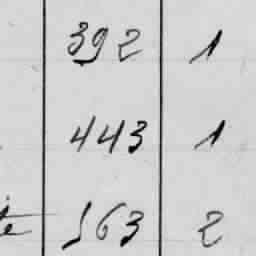 392 1
443 1
te 563 2